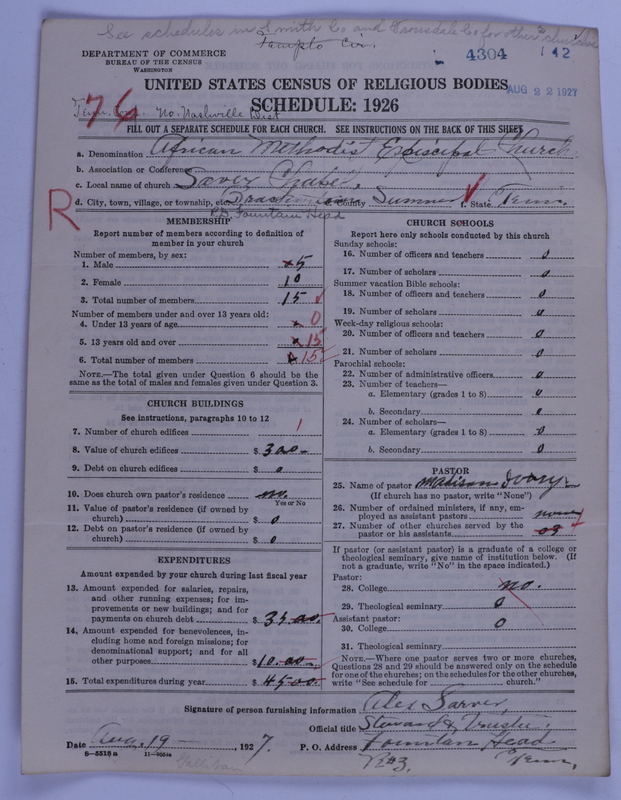 See schedules in Smith Co and Trousdale Co for other churches
DEPARTMENT OF COMMERCE
BUREAU OF THE CENSUS
WASHINGTON
4304
12
UNITED STATES CENSUS OF RELIGIOUS BODIES
AUG 22 1927
SCHEDULE: 1926
76
Tenn. No. Nashville Dist
FILL OUT A SEPARATE SCHEDULE FOR EACH CHURCH. SEE INSTRUCTIONS ON THE BACK OF THIS SHEET
a. Denomination African Methodist Episcopal Church
b. Association or Conference
c. Local name of church
d. City, town, village, or township, etc. e. County Sumner f. State Tenn.
R
Fountain Head
MEMBERSHIP
Report number of members according to definition of
member in your church
Number of members, by sex:
1. Male 5
2. Female 10
3. Total number of members 15
Number of members under and over 13 years old:
4. Under 13 years of age 0
5. 13 years old and over 15
6. Total number of members 15
NOTE.—The total given under Question 6 should be the
same as the total of males and females given under Question 3.
CHURCH BUILDINGS
See instructions, paragraphs 10 to 12
7. Number of church edifices 1
8. Value of church edifices $ 300-
9. Debt on church edifices $ 0
10. Does church own pastor's residence no.
Yes or No
11. Value of pastor's residence (if owned by
church) $ 0
12. Debt on pastor's residence (if owned by
church) $ 0
EXPENDITURES
Amount expended by your church during last fiscal year
13. Amount expended for salaries, repairs,
and other running expenses; for im-
provements or new buildings; and for
payments on church debt $ 35.00.
14. Amount expended for benevolences, in-
cluding home and foreign missions; for
denominational support; and for all
other purposes $ 10.00
15. Total expenditures during year $ 45.00.
CHURCH SCHOOLS
Report here only schools conducted by this church
Sunday schools:
16. Number of officers and teachers 0
17. Number of scholars 0
Summer vacation Bible schools:
18. Number of officers and teachers 0
19. Number of scholars 0
Week-day religious schools:
20. Number of officers and teachers 0
21. Number of scholars 0
Parochial schools:
22. Number of administrative officers 0
23. Number of teachers—
a. Elementary (grades 1 to 8) 0
b. Secondary 0
24. Number of scholars—
a. Elementary (grades 1 to 8) 0
b. Secondary 0
PASTOR
25. Name of pastor Madison Ivory
(If church has no pastor, write "None")
26. Number of ordained ministers, if any, em-
ployed as assistant pastors
27. Number of other churches served by the
pastor or his assistants 03
If pastor (or assistant pastor) is a graduate of a college or
theological seminary, give name of institution below. (If
not a graduate, write "No" in the space indicated.)
Pastor:
28. College no.
29. Theological seminary 0
Assistant pastor:
30. College 0
31. Theological seminary
NOTE.—Where one pastor serves two or more churches,
Questions 28 and 29 should be answered only on the schedule
for one of the churches; on the schedules for the other churches,
write "See schedule for church."
Signature of person furnishing information Alex Sarver
Official title Steward & Trustee
Date Aug. 19 1927. P. O. Address Fountain Head
8-5518 a
R#3. Tenn.